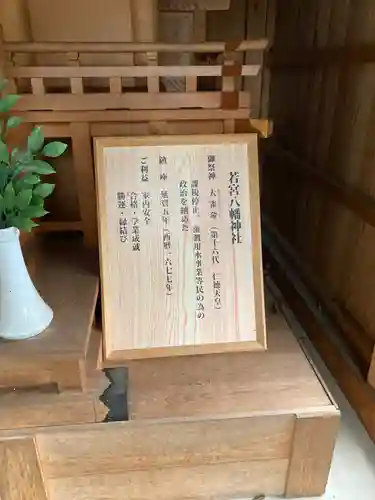 若宮八幡神社
御祭神 大雀命(第十六代 仁徳天皇)
課税停止、灌漑用水事業等民の為の
政治を納めた
鎮座 延寳五年(西暦一六七七年)
ご利益 家内安全
合格・学業成就
勝運・縁結び